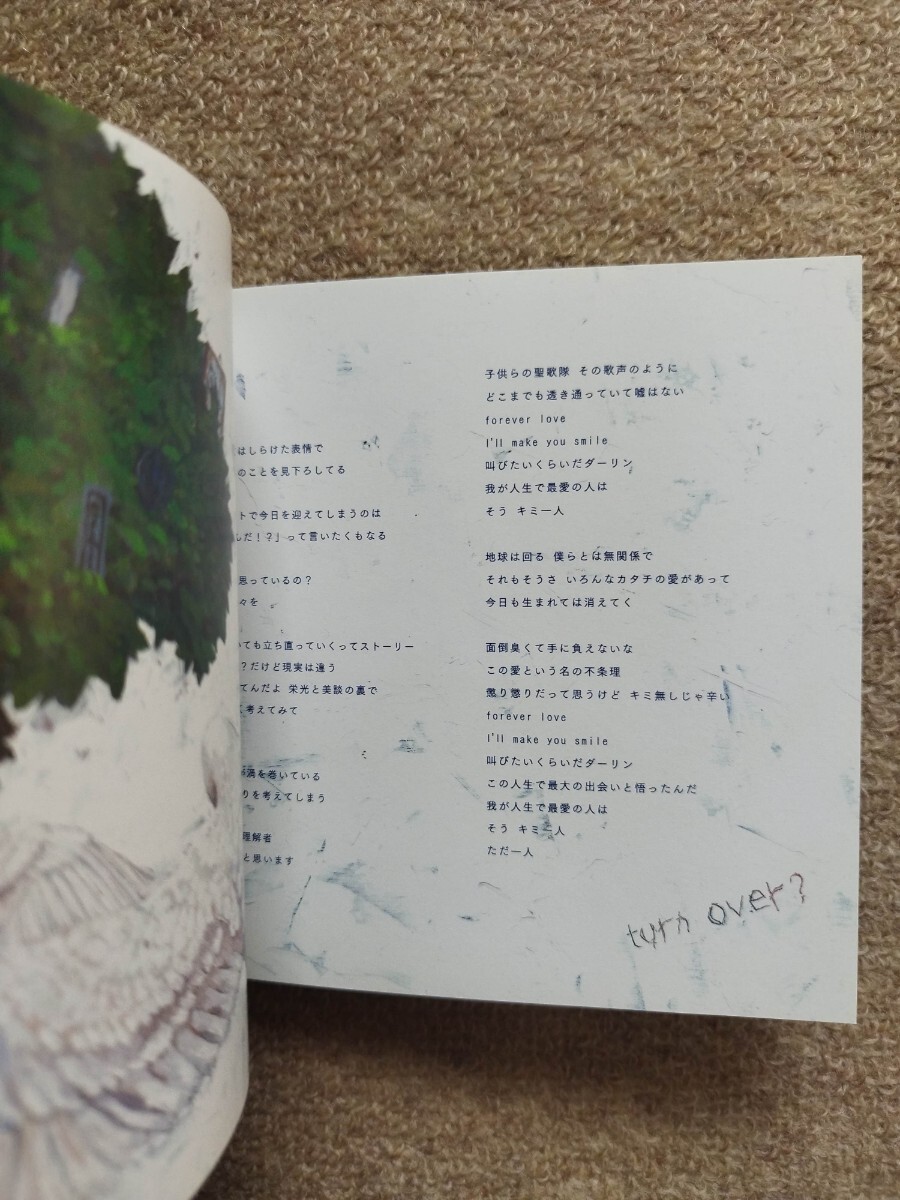 はしらけた表情で
のことを見下ろしてる
トで今日を迎えてしまうのは
んだ！？」って言いたくもなる
思っているの？
々を
いても立ち直っていくってストーリー
？だけど現実は違う
てんだよ 栄光と美談の裏で
考えてみて
渦を巻いている
りを考えてしまう
理解者
と思います
子供らの聖歌隊 その歌声のように
どこまでも透き通っていて嘘はない
forever love
I'll make you smile
叫びたいくらいだダーリン
我が人生で最愛の人は
そう キミ一人
地球は回る 僕らとは無関係で
それもそうさ いろんなカタチの愛があって
今日も生まれては消えてく
面倒臭くて手に負えないな
この愛という名の不条理
懲り懲りだって思うけど キミ無しじゃ辛い
forever love
I'll make you smile
叫びたいくらいだダーリン
この人生で最大の出会いと悟ったんだ
我が人生で最愛の人は
そう キミ一人
ただ一人
turn over?